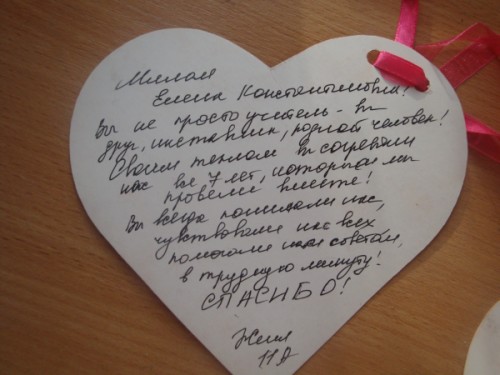 Милая
Елена Константиновна!
Вы не просто учитель - Вы
друг, наставник, родной человек!
Своим теплом Вы согревали
нас все 7 лет, которые мы
провели вместе!
Вы всегда понимали нас,
чувствовали нас всех
помогали нам советом,
в трудную минуту!
СПАСИБО!
Женя
11А